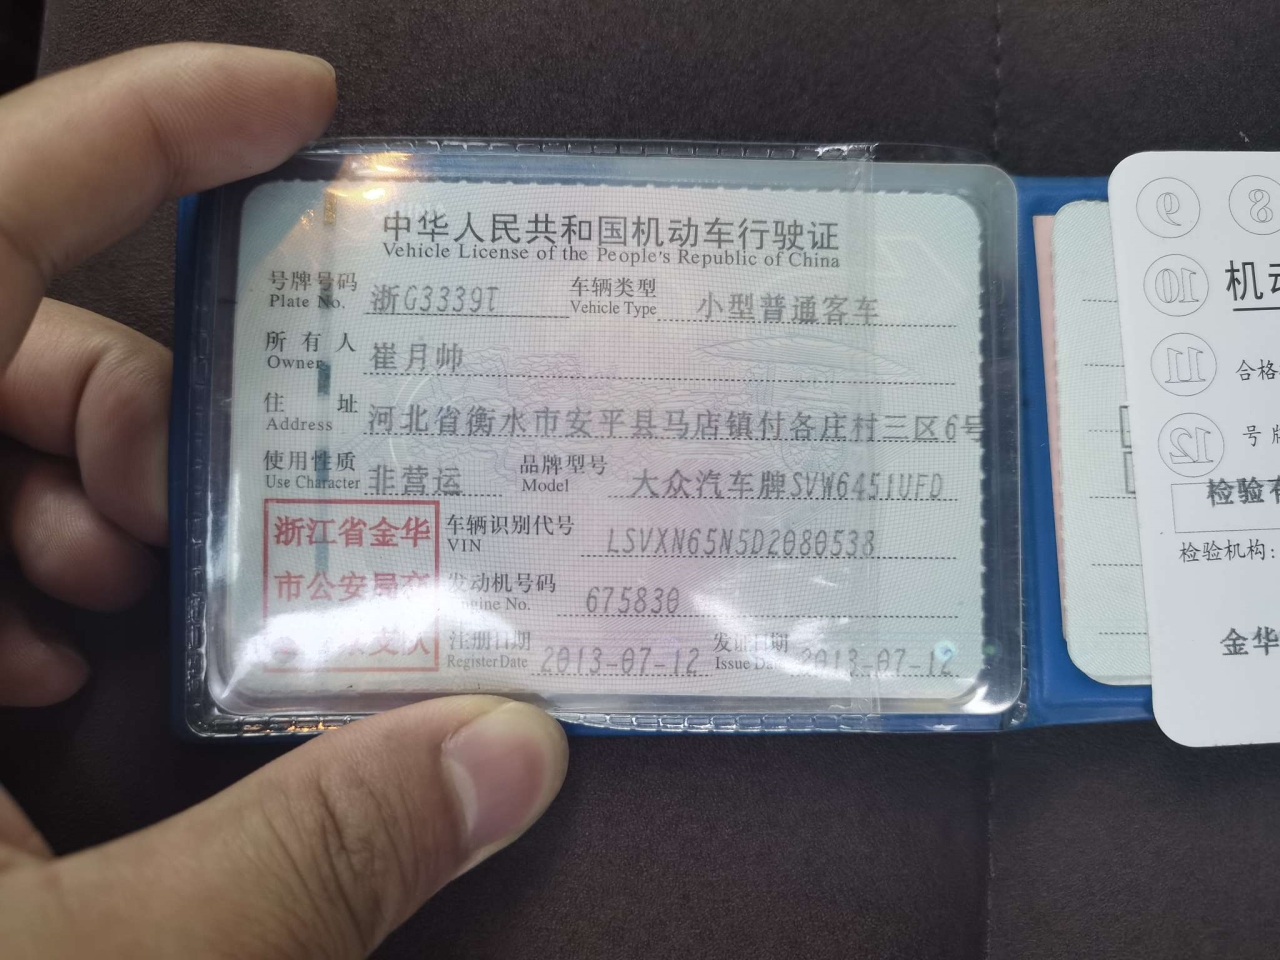 中华人民共和国机动车行驶证
Vehicle License of the People's Republic of China
号牌号码 浙G3339T 车辆类型 小型普通客车
Plate No. Vehicle Type
所有人 崔月帅
Owner
住址 河北省衡水市安平县马店镇付各庄村三区6号
Address
使用性质 非营运 品牌型号 大众汽车牌SVW6451UFD
Use Character Model
浙江省金华
市公安局交
车辆识别代号 LSVXN65N5D2080538
VIN
发动机号码 675830
Engine No.
注册日期 2013-07-12 发证日期 2013-07-12
Register Date Issue Date
9 8
10 机动
11 合格
12 号牌
检验有
检验机构:
金华